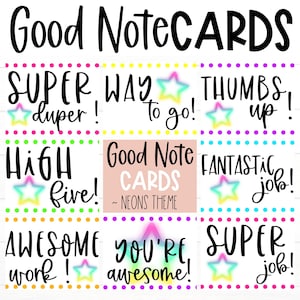 Good Note CARDS
SUPER
duper!
WAY
to go!
THUMBS
up!
HIGH
five!
Good Note
CARDS
~ NEONS THEME
FANTASTIC
job!
AWESOME
work!
YOU'RE
awesome!
SUPER
job!